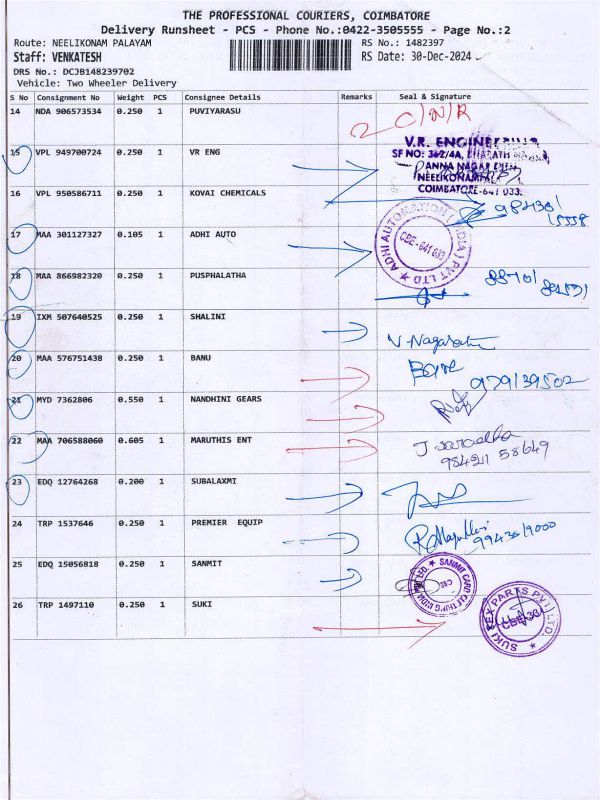 THE PROFESSIONAL COURIERS, COIMBATORE
Delivery Runsheet - PCS - Phone No.:0422-3505555 - Page No.:2
Route: NEELIKONAM PALAYAM RS No.: 1482397
Staff: VENKATESH RS Date: 30-Dec-2024
DRS No.: DCJB148239702
Vehicle: Two Wheeler Delivery
S No Consignment No Weight PCS Consignee Details Remarks Seal & Signature
14 NDA 906573534 0.250 1 PUVIYARASU C/N/R
15 VPL 949700724 0.250 1 VR ENG
V.R. ENGINEERING
SF NO: 362/4A, BHARATH
ANNA NAGAR
NEELIKONAM
COIMBATORE-641 033.
16 VPL 950586711 0.250 1 KOVAI CHEMICALS
17 MAA 301127327 0.105 1 ADHI AUTO
ADHI AUTOMATION (INDIA) PVT LTD
CBE-641 033
18 MAA 866982320 0.250 1 PUSPHALATHA
19 IXM 507640525 0.250 1 SHALINI
20 MAA 576751438 0.250 1 BANU
979139502
21 MYD 7362806 0.550 1 NANDHINI GEARS
22 MAA 706588060 0.605 1 MARUTHIS ENT
98421 58649
23 EDQ 12764268 0.200 1 SUBALAXMI
24 TRP 1537646 0.250 1 PREMIER EQUIP
25 EDQ 15056818 0.250 1 SANMIT
26 TRP 1497110 0.250 1 SUKI